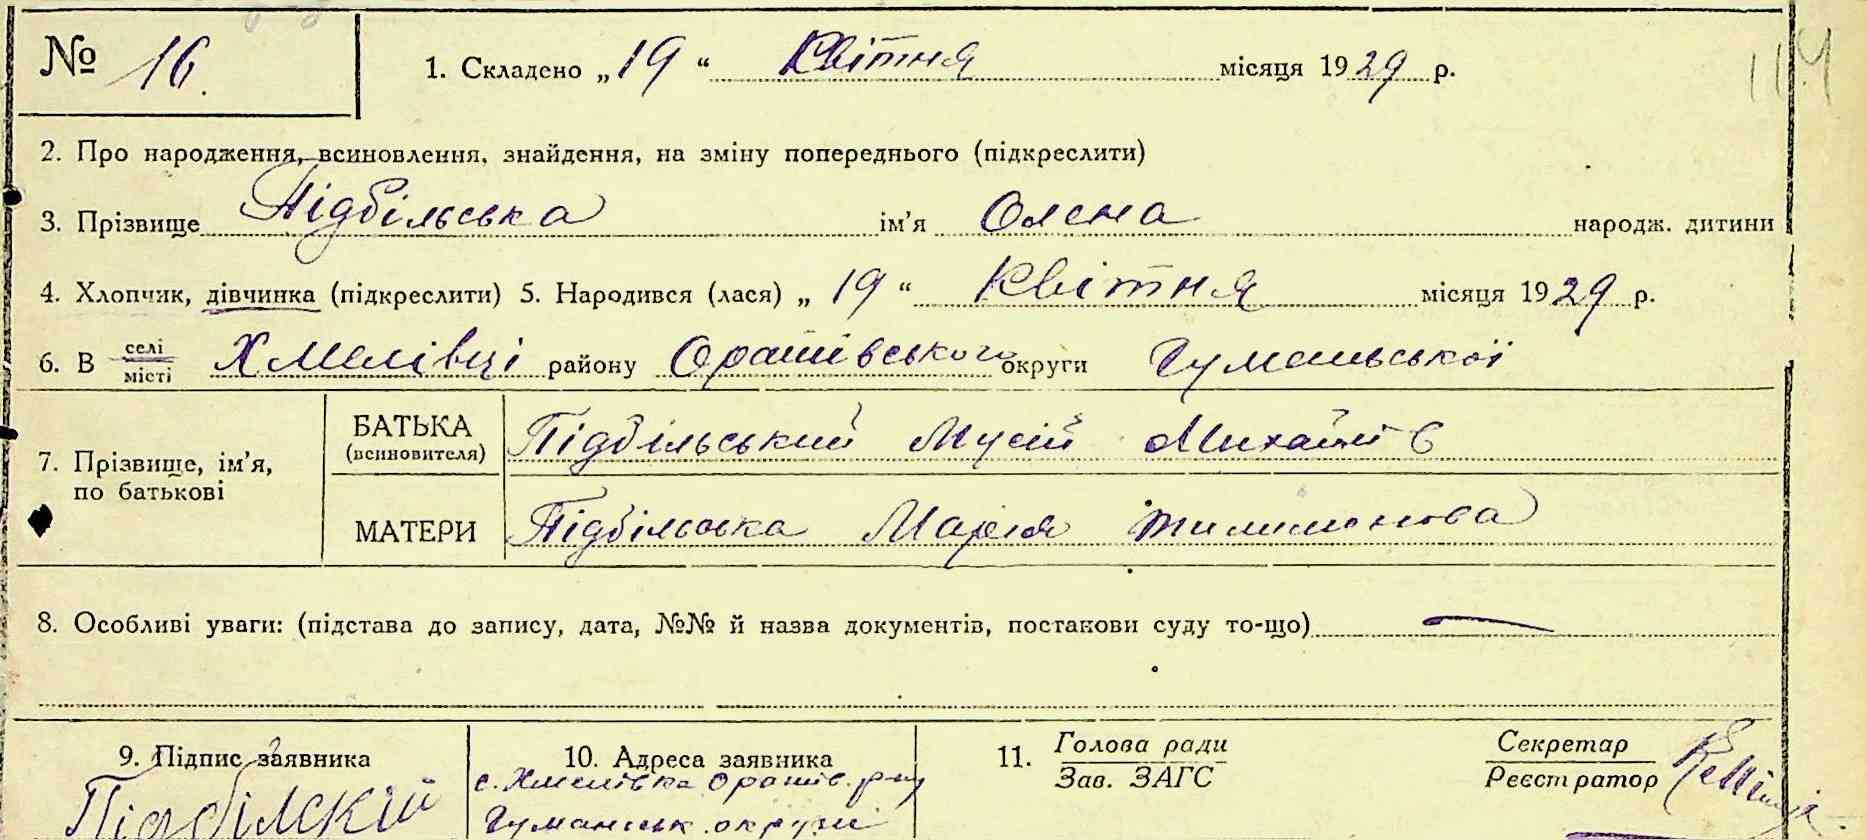 № 16. 1. Складено „19“ Квітня місяця 1929 р.
114
2. Про народження, всиновлення, знайдення, на зміну попереднього (підкреслити)
3. Прізвище Підбільська ім’я Олена народж. дитини
4. Хлопчик, дівчинка (підкреслити) 5. Народився (лася) „19“ Квітня місяця 1929 р.
6. В селі місті Хмелівці району Оратівського округи Гуманьської
7. Прізвище, ім’я, по батькові
БАТЬКА (всиновителя) Підбільський Мусій Михайлів
МАТЕРИ Підбільська Марія Тилимонова
8. Особливі уваги: (підстава до запису, дата, №№ й назва документів, постанови суду то-що)
9. Підпис заявника
Підбілский
10. Адреса заявника
с. Хмелівка Оратів. р-ну
Гуманськ. округи
11. Голова ради
Зав. ЗАГС
Секретар
Реєстратор